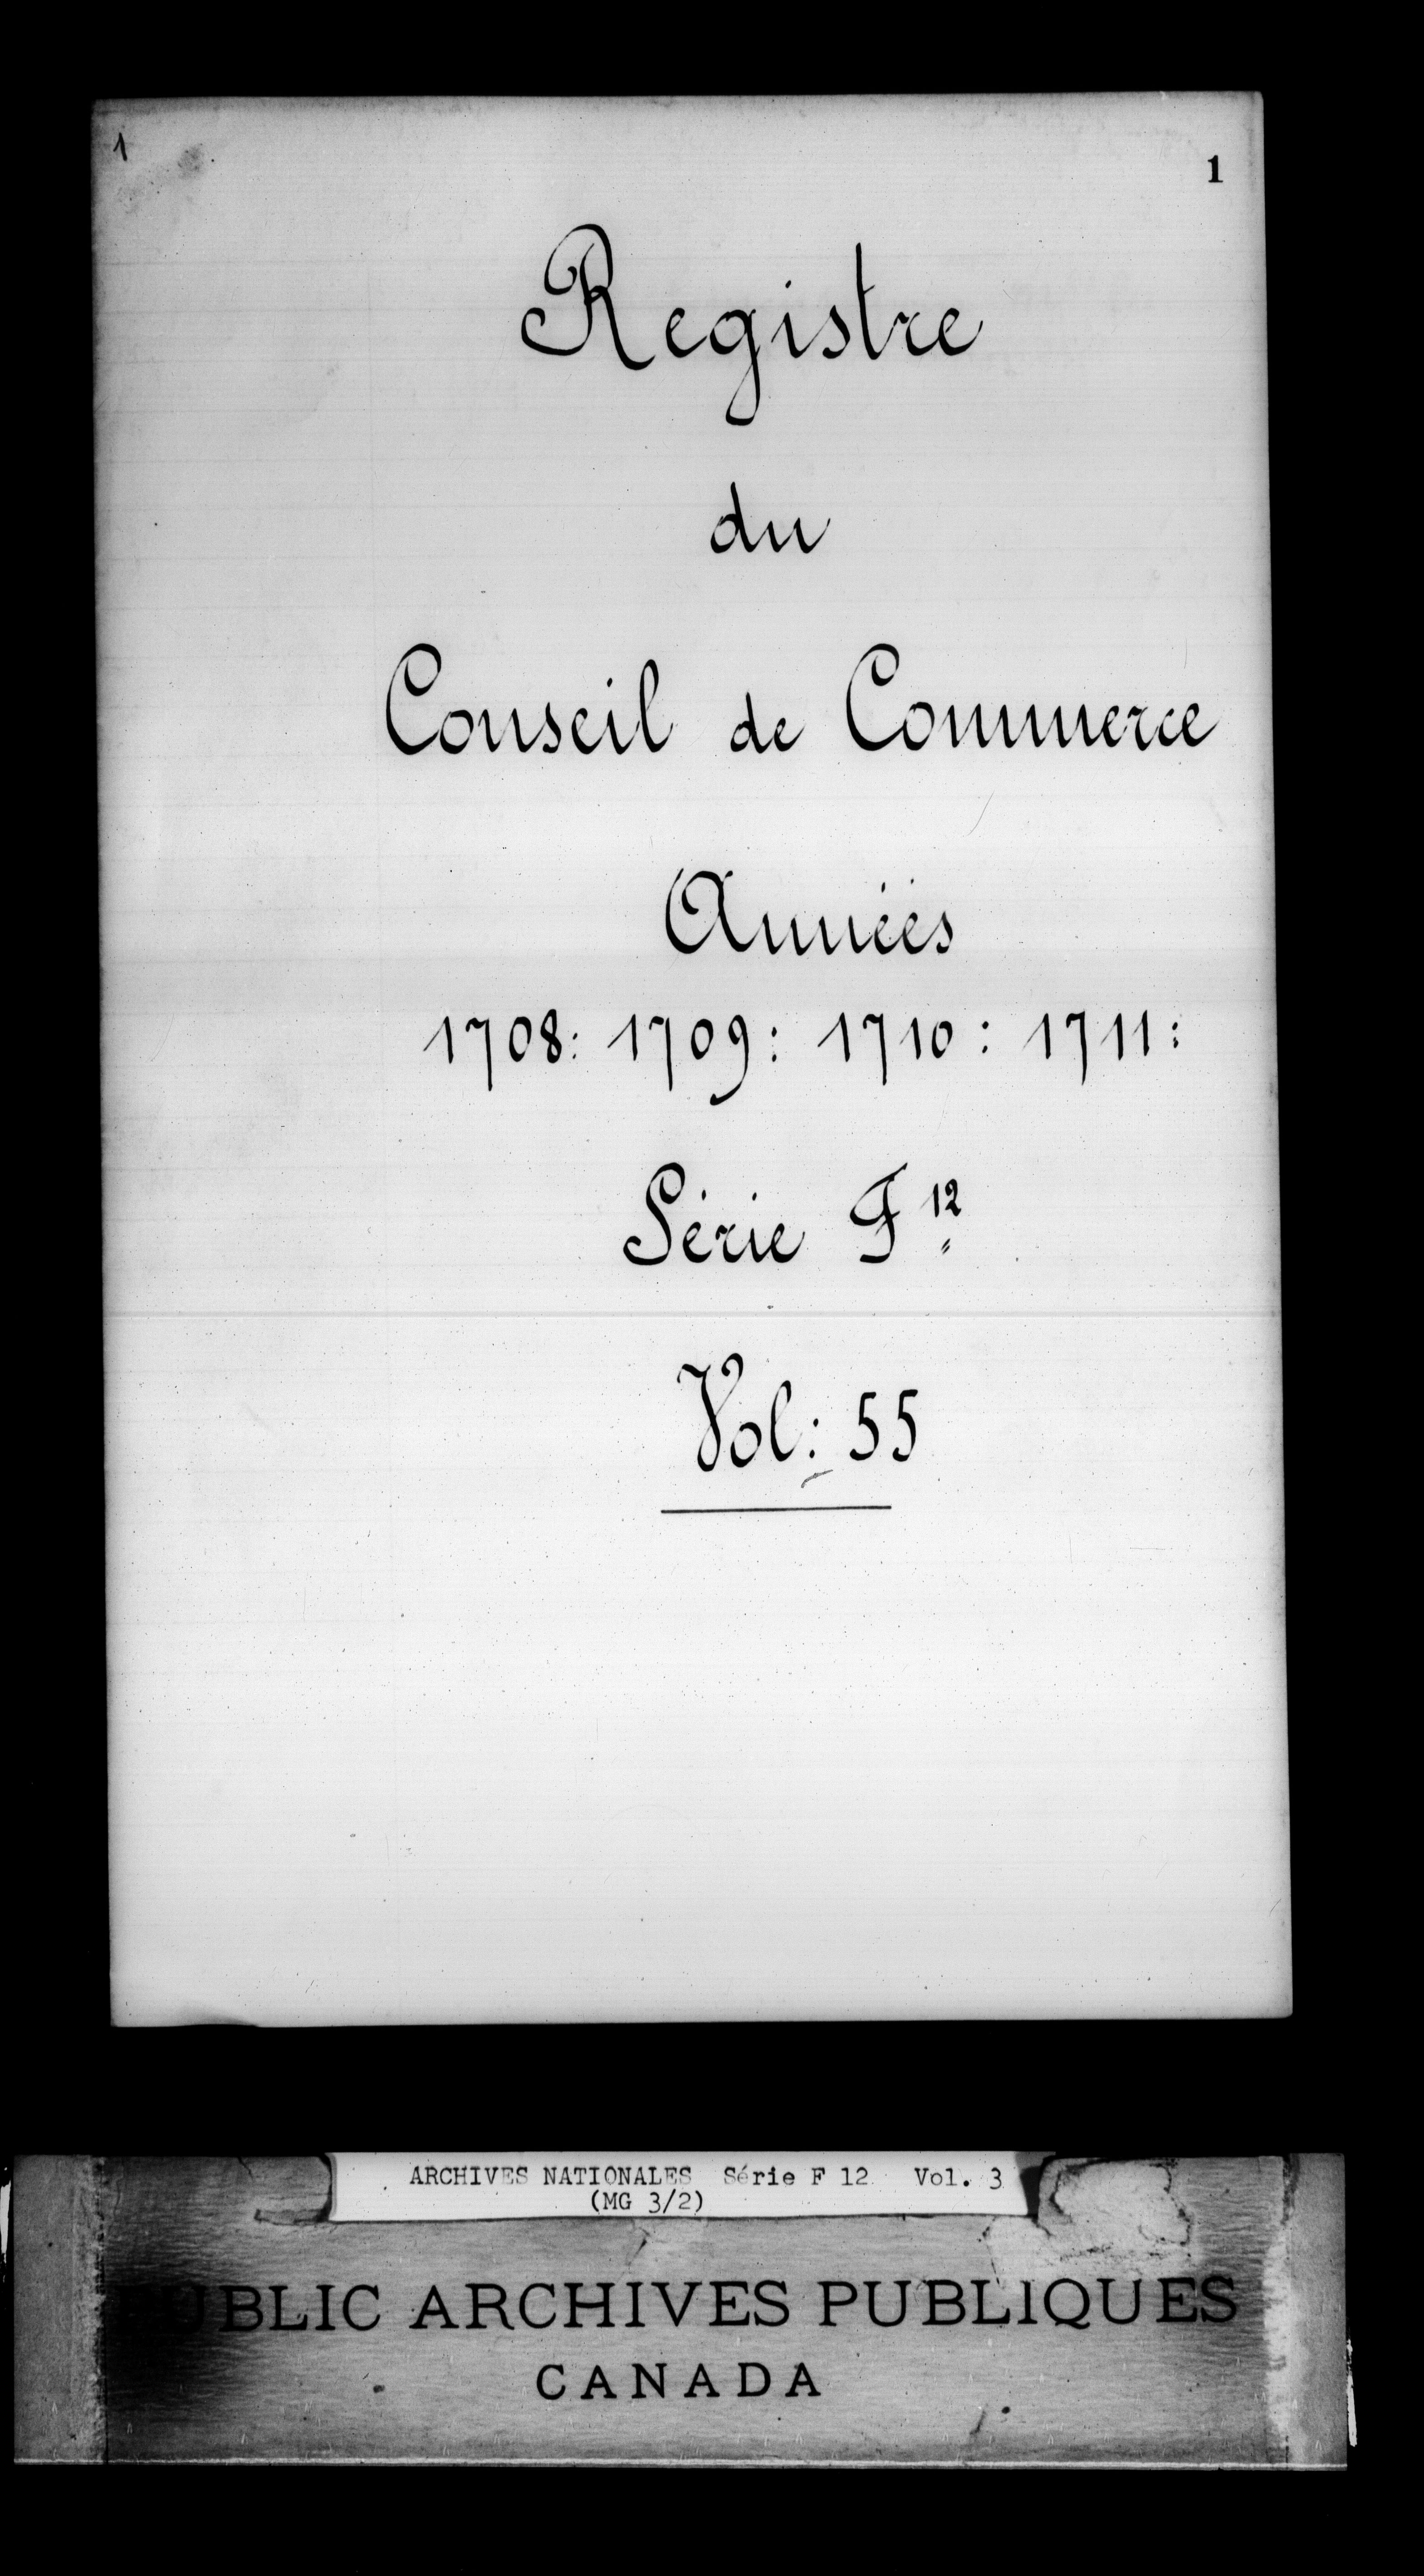 1
1
Registre
du
Conseil de Commerce
Années
1708: 1709: 1710: 1711:
Série F 12
Vol: 55
ARCHIVES NATIONALES Série F 12 Vol. 3
(MG 3/2)
PUBLIC ARCHIVES PUBLIQUES
CANADA